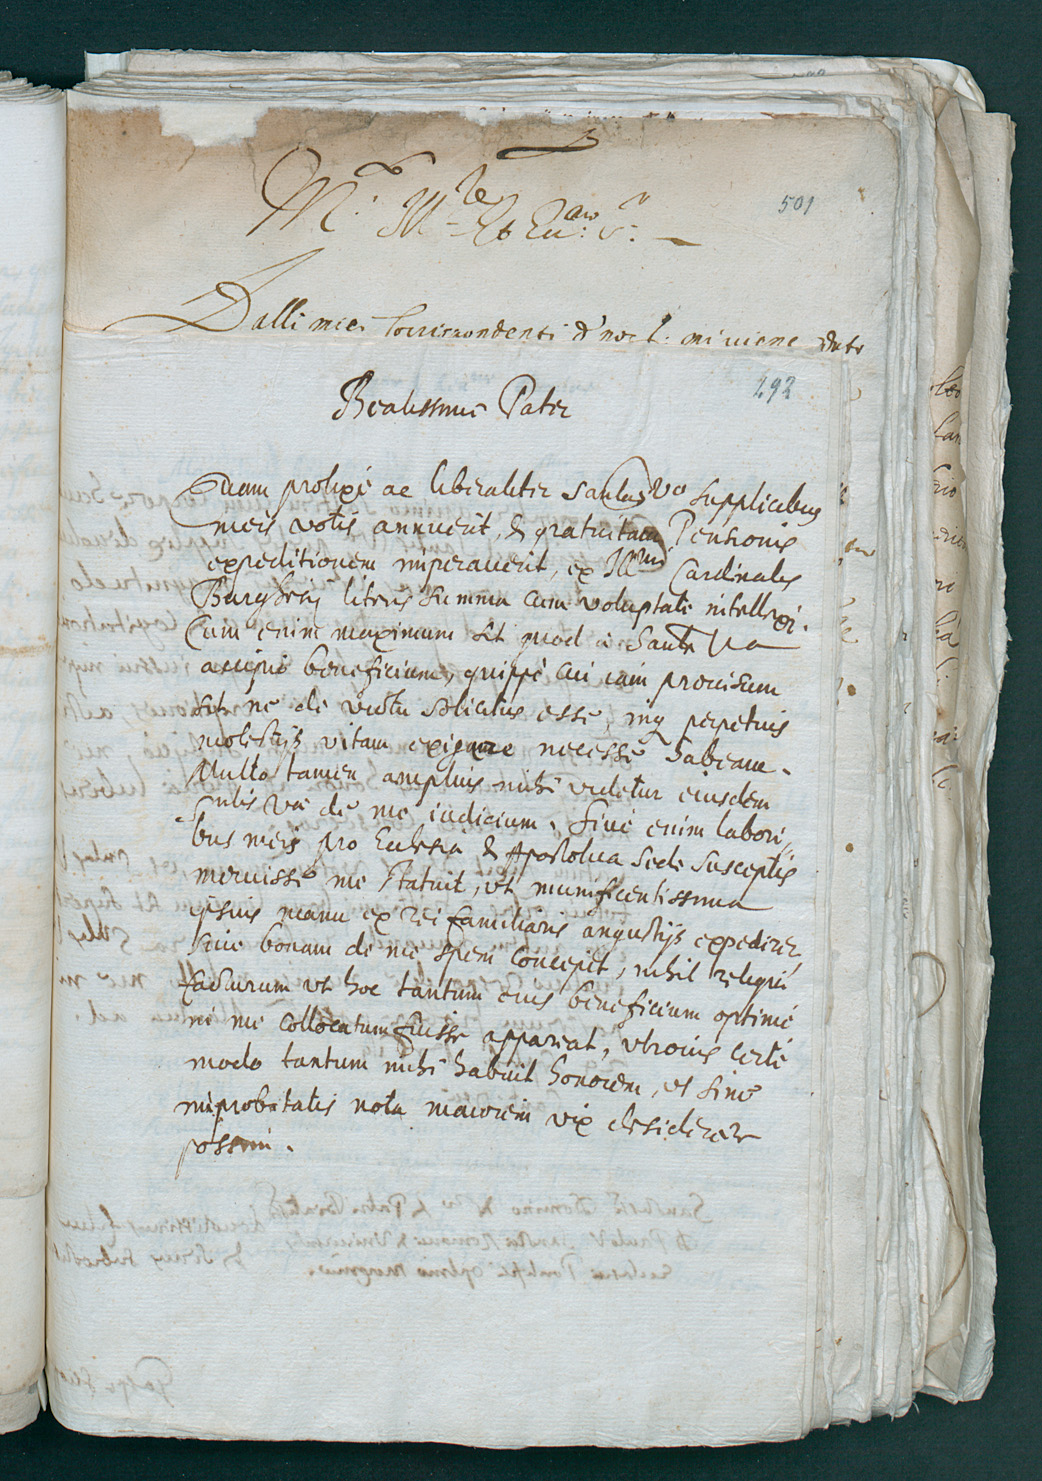 501
Dalli miei Corrispondenti d' mi viene dato
292
Beatissime Pater
Quam prolixe ac liberaliter Sanctas Va supplicibus
meis votis annuerit, & gratuitam Pensionis
expeditionem imperauerit, ex Illmi Cardinalis
Burghesij literis summa cum voluptate intellexi.
Cum enim maximum sit quod à Sancte Va
accipio beneficium, quippè cui iam prouisum
sit, ne de victu solicitus esse, inq perpetuis
molestijs vitam exigere necesse habeam.
Multo tamen amplius mihi videtur eiusdem
Sntis Væ de me iudicium. Siue enim labori,,
bus meis pro Ecclesia & Apostolica Sede susceptis
meruisse me statuit, ut munificentissima
ipsius manu ex rei familiaris angustijs expedirer
siue bonam de me spem concepit, nihil reliqui
facturum ut hoc tantum eius beneficium optimè
in me collocatum fuisse appareat, utrouis certè
modo tantum mihi habuit honorem, ut sine
improbitatis nota maiorem vix desiderare
possim.